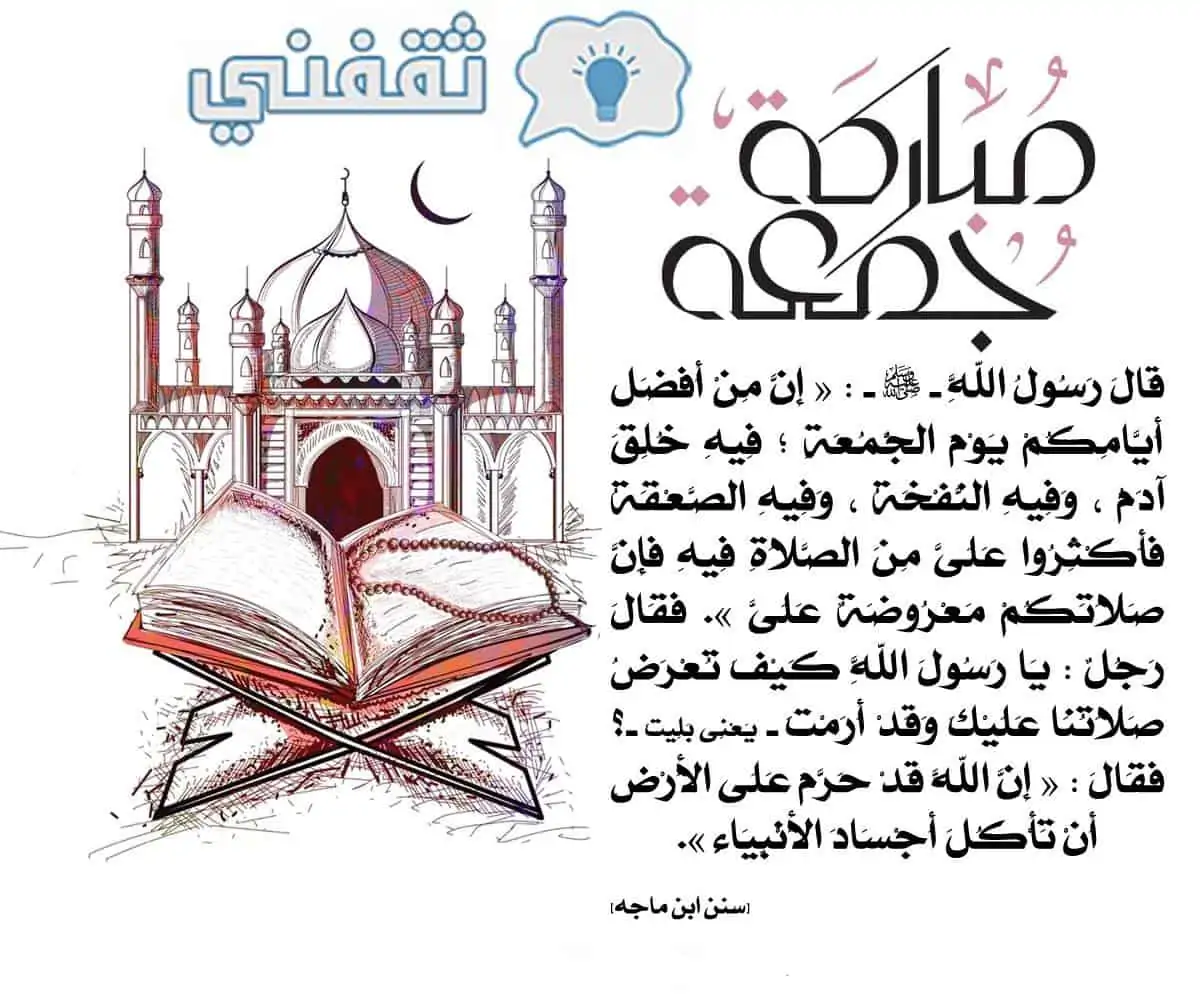 ثقفني
جمعة
مباركة
قالَ رَسُولُ اللَّهِ ـ ﷺ ـ : « إنَّ مِنْ أفضَل
أيَّامِكُمْ يَوْم الجُمُعَة ؛ فِيهِ خلِقَ
آدَم ، وَفِيهِ النُفخَة ، وَفِيهِ الصَّعْقة
فأكْثِرُوا عَلىَّ مِنَ الصَّلاةِ فِيهِ فإنَّ
صَلاتكُمْ مَعْرُوضَة عَلىَّ ». فقالَ
رَجُلٌ : يَا رَسُولَ اللَّهِ كَيْف تعْرَضُ
صَلاتنا عَليْك وَقدْ أرمْت ـ يَعنى بليت ـ؟
فقالَ : « إنَّ اللَّهَ قدْ حرَّم عَلى الأرْض
أنْ تأكُلَ أجْسَادَ الأنْبيَاء ».
[سنن ابن ماجه]